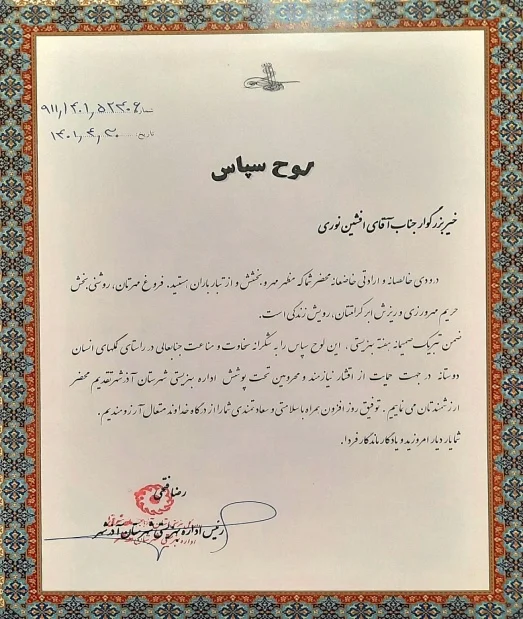 شماره: ۹۱۱/۱۴۰۱/۵۲۳۰۶
تاریخ: ۱۴۰۱/۴/۳۰
لوح سپاس
خیر بزرگوار جناب آقای افشین نوری
درودی خالصانه و ارادتی خاضعانه محضر شما که مظهر مهر و بخشش و از تبار باران هستید. فروغ مهرتان، روشنی بخش
حریم مهرورزی و ریزش ابر کرامتتان، رویش زندگی است.
ضمن تبریک صمیمانه هفته بهزیستی، این لوح سپاس را به شکرانه سخاوت و مناعت جنابعالی در راستای کمکهای انسان
دوستانه در جهت حمایت از اقشار نیازمند و محرومین تحت پوشش اداره بهزیستی شهرستان آذرشهر تقدیم محضر
ارزشمندتان می نماییم. توفیق روز افزون همراه با سلامتی و سعادتمندی شما را از درگاه خداوند متعال آرزومندیم.
شما یار دیار امروزید و یادگار ماندگار فردا.
رضا فتحی
رئیس اداره بهزیستی شهرستان آذرشهر